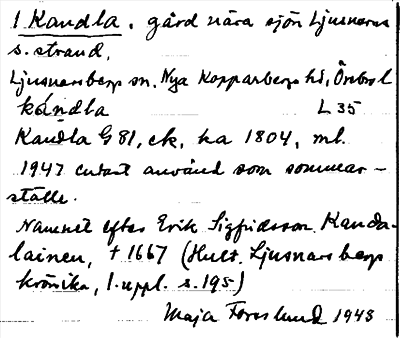 1 Kandla. gård nära sjön Ljusnarens
s. strand,
Ljusnarsberg sn. Nya Kopparbergs hd, Örebro l
kándla L 35
Kandla G 81, ek, ka 1804, ml.
1947 endast använd som sommar-
ställe.
Namnet efter Erik Sigfridsson Kanda-
lainen, † 1667 (Hult. Ljusnarsbergs
krönika, 1. uppl. s. 195)
Maja Forslund 1948